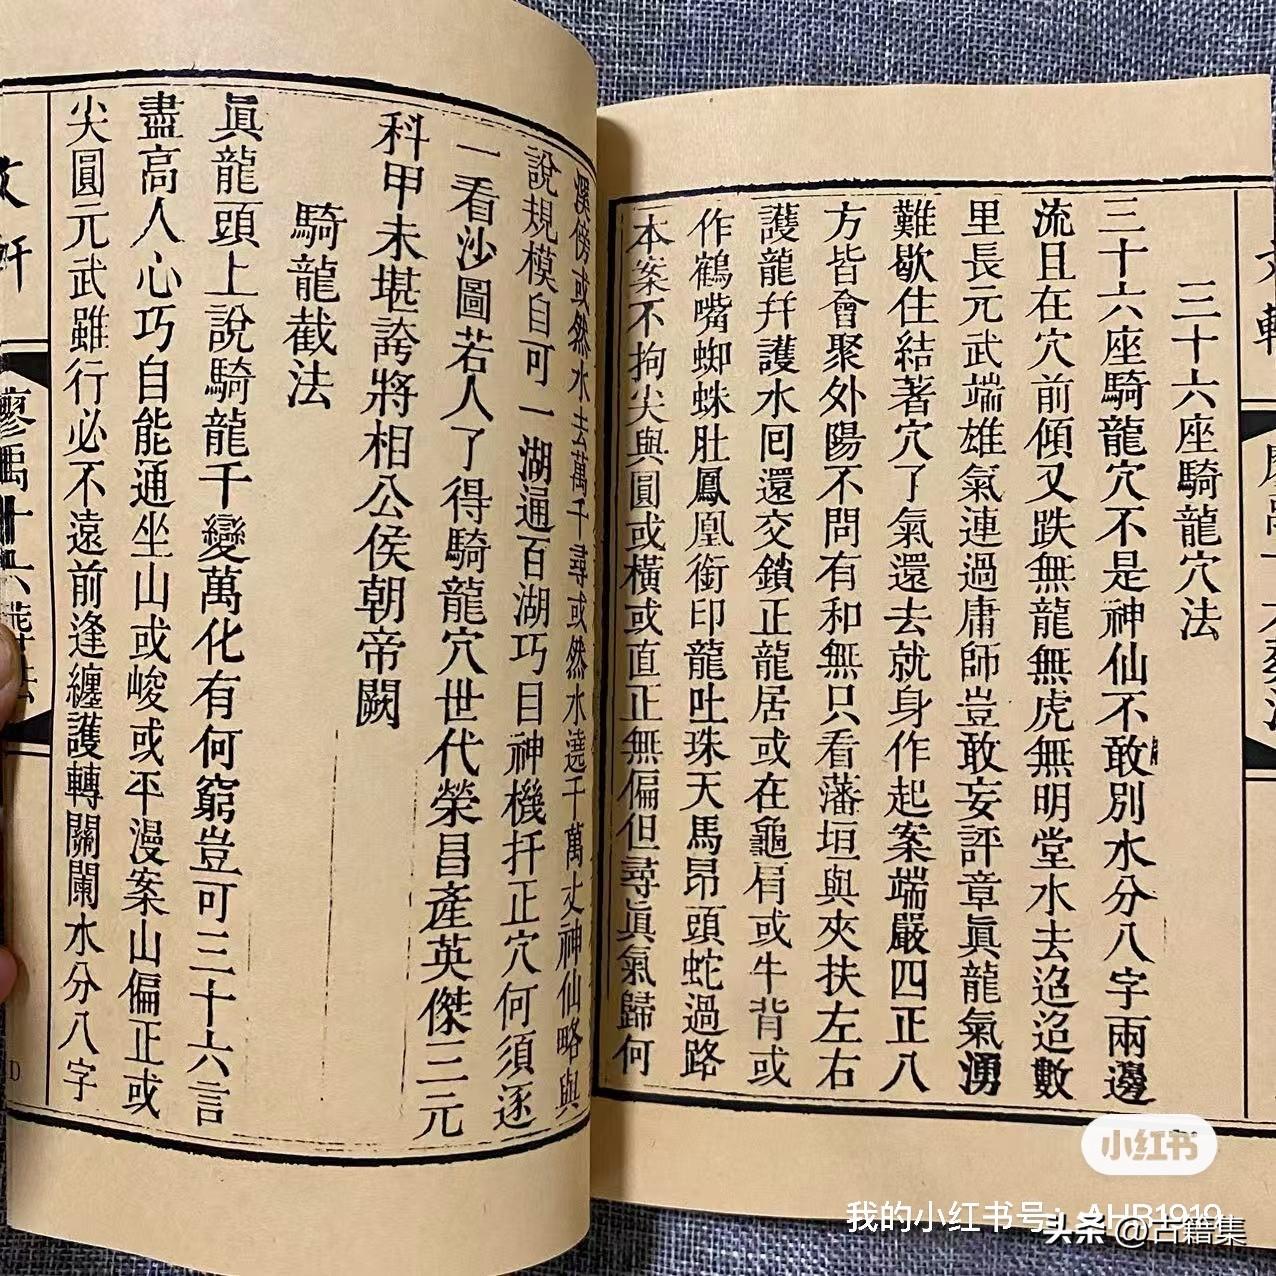 三十六座騎龍穴法
三十六座騎龍穴不是神仙不敢別水分八字兩邊
流且在穴前傾又跌無龍無虎無明堂水去迢迢數
里長元武端雄氣連過庸師豈敢妄評章眞龍氣湧
難歇住結著穴了氣還去就身作起案端嚴四正八
方皆會聚外陽不問有和無只看藩垣與夾扶左右
護龍幷護水回還交鎖正龍居或在龜肩或牛背或
作鶴嘴蜘蛛肚鳳凰銜印龍吐珠天馬昂頭蛇過路
本案不拘尖與圓或橫或直正無偏但尋眞氣歸何
溪傍或然水去萬千尋或然水澆千萬丈神仙略與
說規模自可一湖通百湖巧目神機扦正穴何須逐
一看沙圖若人了得騎龍穴世代榮昌產英傑三元
科甲未堪誇將相公侯朝帝闕
騎龍截法
眞龍頭上說騎龍千變萬化有何窮豈可三十六言
盡高人心巧自能通坐山或峻或平漫案山偏正或
尖圓元武雖行必不遠前逢纏護轉關闌水分八字
小红书
我的小红书号：AHB1919
头条 @古籍集